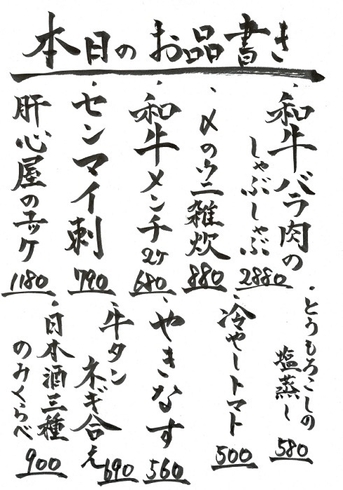 本日のお品書き
・和牛バラ肉の
しゃぶしゃぶ
2880
・〆のウニ雑炊
880
・和牛メンチ2ケ
680
・センマイ刺
790
・肝心屋のユッケ
1180
・とうもろこしの
塩蒸し
580
・冷やしトマト
500
・やきなす
560
・牛タン
ネギ合え
690
・日本酒三種
のみくらべ
900